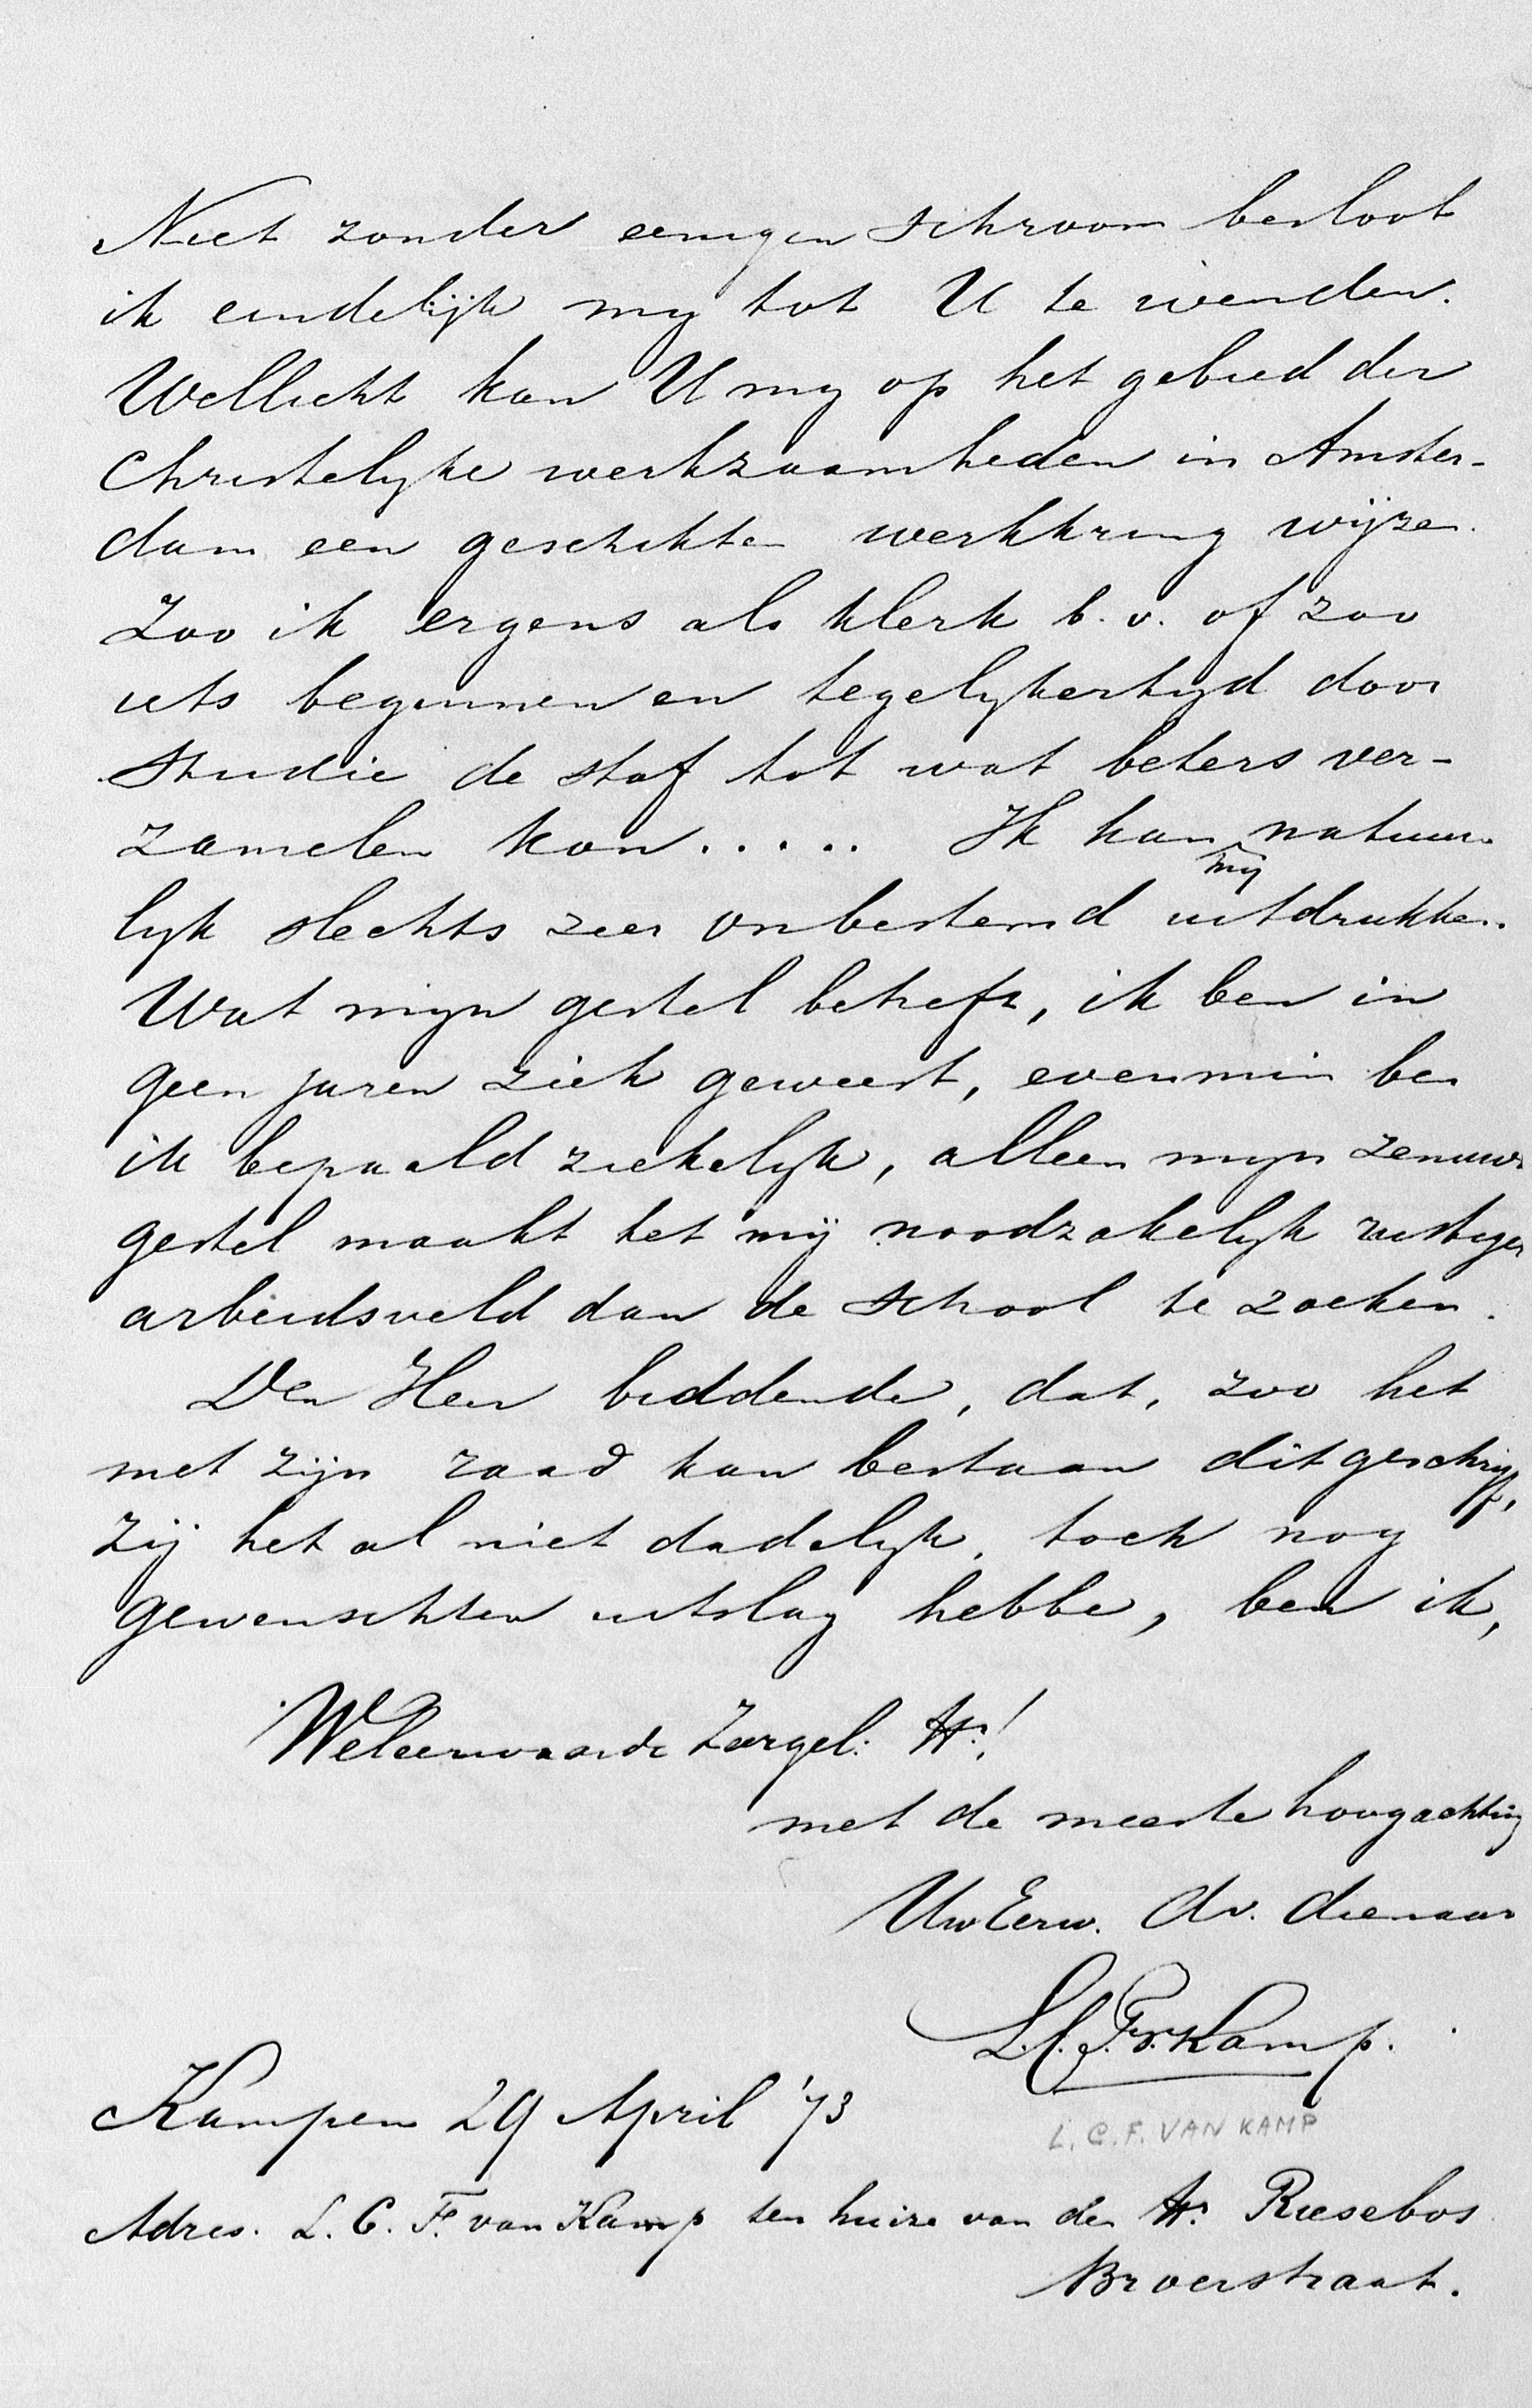 Niet zonder eenigen schroom besloot
ik eindelijk my tot U te wenden.
Wellicht kan U my op het gebied der
Christelyke werkzaamheden in Amster-
dam een geschikten werkkring wijzen.
Zoo ik ergens als klerk b.v. of zoo
iets beginnen en tegelykertyd door
studie de stof tot wat beters ver-
zamelen kon..... Ik kan natuur-
lyk slechts zeer onbestemd mij uitdrukken.
Wat myn gestel betreft, ik ben in
geen jaren ziek geweest, evenmin ben
ik bepaald ziekelyk, alleen myn zenuw-
gestel maakt het mij noodzakelyk rustiger
arbeidsveld dan de school te zoeken.
Den Heer biddende, dat, zoo het
met zijn raad kan bestaan dit geschrijf,
zij het al niet dadelyk, toch nog
gewenschten uitslag hebbe, ben ik,
Weleerwaarde Zeergel. Hr!
met de meeste hoogachting
UwEerw. dv. dienaar
L.C.F.v.Kamp.
Kampen 29 April '73
L. C. F. VAN KAMP
Adres. L. C. F. van Kamp ten huize van den Hr. Riesebos
Broerstraat.